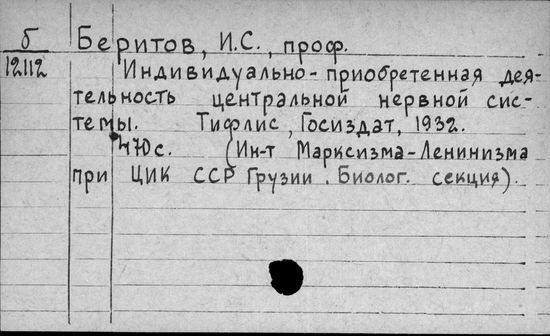 б
Беритов, И.С., проф.
12112
Индивидуально-приобретенная дея-
тельность центральной нервной сис-
темы. Тифлис, Госиздат, 1932.
470 с. (Ин-т Марксизма-Ленинизма
при ЦИК ССР Грузии. Биолог. секция).